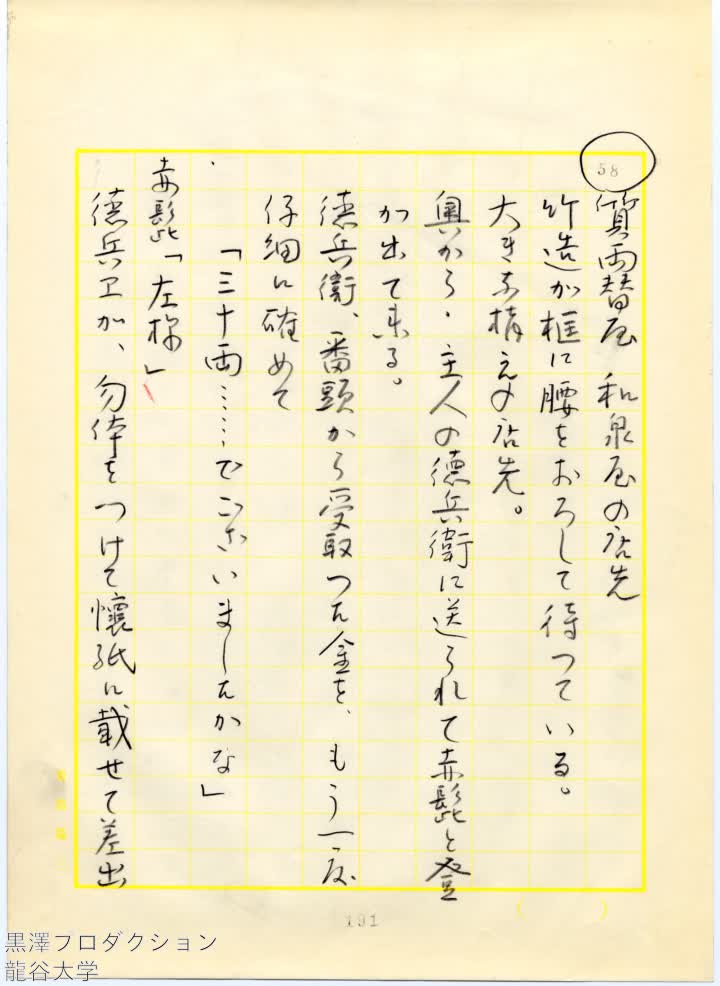 58
質両替屋 和泉屋の店先
竹造が框に腰をおろして待つている。
大きな構えの店先。
奥から、主人の徳兵衛に送られて赤髭と登
が出て来る。
徳兵衛、番頭から受取つた金を、もう一度
仔細に確めて
「三十両……でございましたかな」
赤髭「左様」
徳兵卫が、勿体をつけて懐紙に載せて差出
191
黒澤プロダクション
龍谷大学